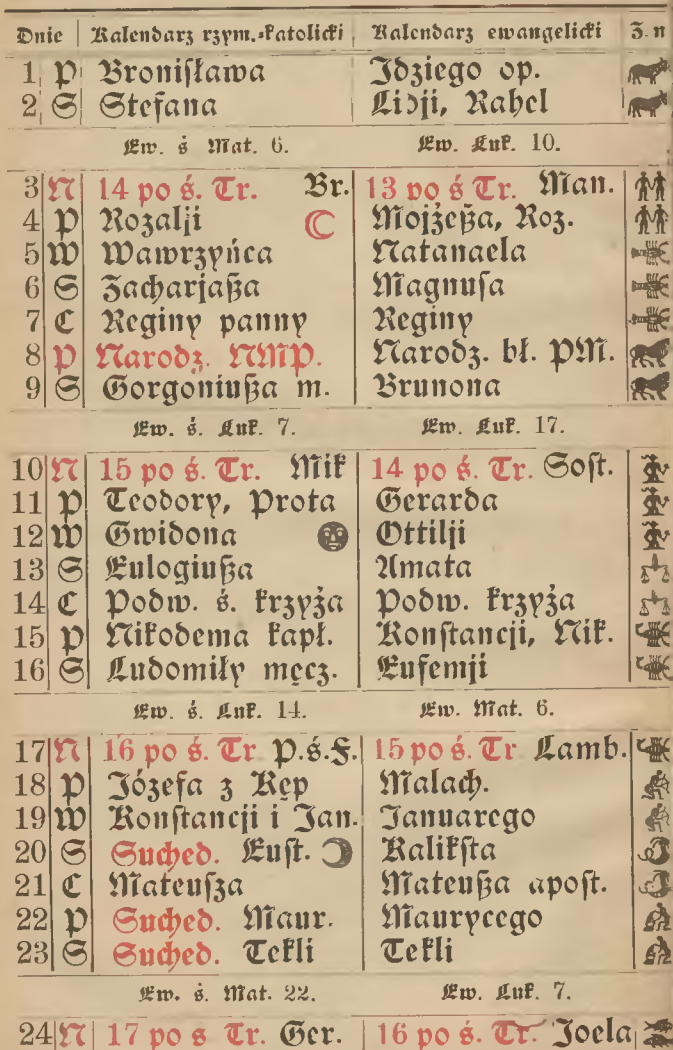 Dnie Kalendarz rzym.-katolicki Kalendarz ewangelicki Z. n
1 P Bronisława Idziego op.
2 S Stefana Lidji, Rahel
Ew. ś Mat. 6. Ew. Łuk. 10.
3 N 14 po ś. Tr. Br. 13 po ś Tr. Man.
4 P Rozalji Mojżeßa, Roz.
5 W Wawrzyńca Natanaela
6 S Zacharjaßa Magnusa
7 C Reginy panny Reginy
8 P Narodz. NMP. Narodz. bł. PM.
9 S Gorgoniußa m. Brunona
Ew. ś. Łuk. 7. Ew. Łuk. 17.
10 N 15 po ś. Tr. Mik 14 po ś. Tr. Sost.
11 P Teodory, Prota Gerarda
12 W Gwidona Ottilji
13 S Eulogiußa Amata
14 C Podw. ś. krzyża Podw. krzyża
15 P Nikodema kapł. Konstancji, Nik.
16 S Ludomiły męcz. Eufemji
Ew. ś. Łuk. 14. Ew. Mat. 6.
17 N 16 po ś. Tr P.ś.F. 15 po ś. Tr Lamb.
18 P Józefa z Kęp Malach.
19 W Konstancji i Jan. Januarego
20 S Suched. Eust. Kaliksta
21 C Mateusza Mateußa apost.
22 P Suched. Maur. Maurycego
23 S Suched. Tekli Tekli
Ew. ś. Mat. 22. Ew. Łuk. 7.
24 N 17 po s Tr. Ger. 16 po ś. Tr. Joela